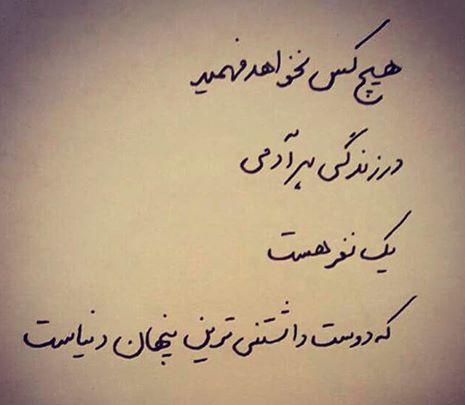 هیچ کس نخواهد فهمید
در زندگی هر آدمی
یک نفر هست
که دوست داشتنی ترین پنهان دنیاست